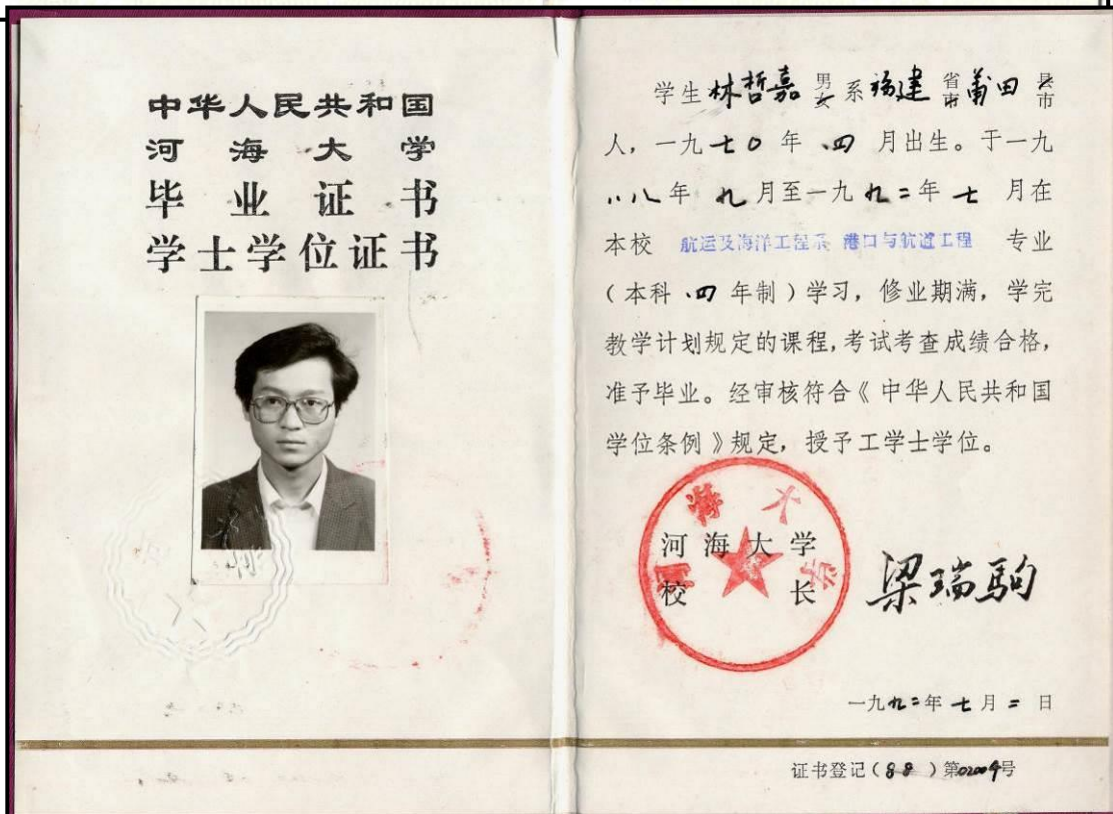 中华人民共和国
河海大学
毕业证书
学士学位证书
学生林哲嘉 男女 系福建 省市 莆田 县市
人，一九七〇年 四 月出生。于一九
八八年 九月至一九九二年 七 月在
本校 航运及海洋工程系 港口与航道工程 专业
（本科 四 年制）学习，修业期满，学完
教学计划规定的课程，考试考查成绩合格，
准予毕业。经审核符合《中华人民共和国
学位条例》规定，授予工学士学位。
河海大学
河海大学
校长 梁瑞驹
一九九二年七月二日
证书登记（88）第02009号